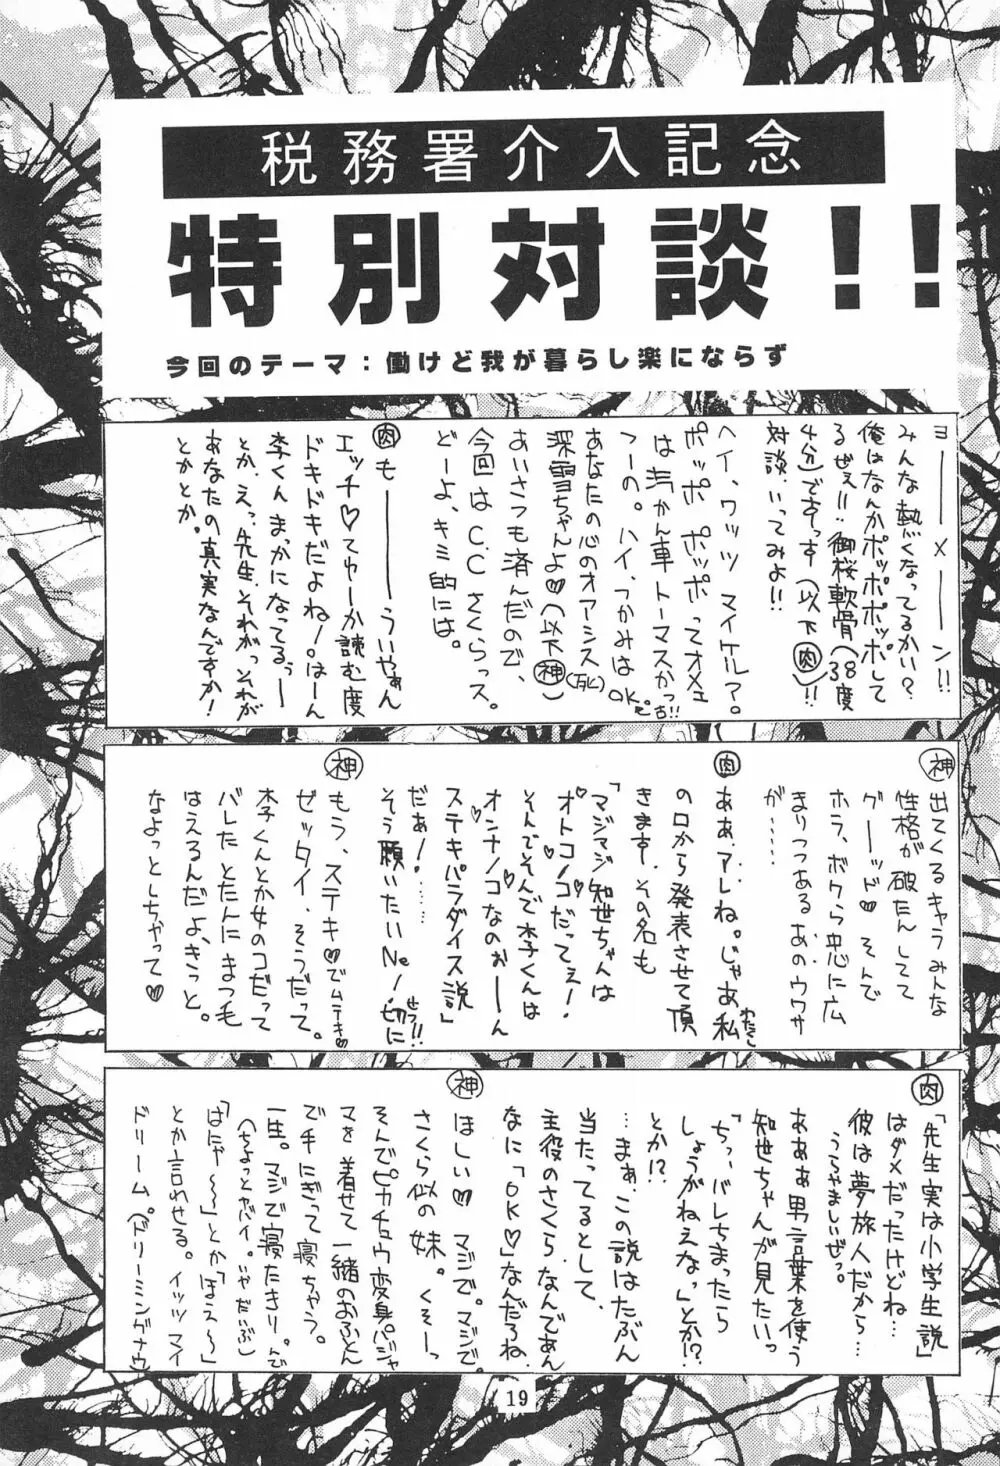 税務署介入記念
特別対談!!
今回のテーマ:働けど我が暮らし楽にならず
ヨーーーメーーーン!!
みんな熱くなってるかい?
俺はなんかポッポポッポして
るぜぇ!!…御桜軟骨(38度
4分)ですっす(以下肉)!!
対談…いってみよ!!
ヘイ、ワッツ マイケル?。
ポッポ ポッポってオメエ
は汽かん車トーマスかっ!!
つーの。ハイ、つかみはOK。
あなたの心のオアシス
深雪ちゃんよ♡(以下神)
あいさつも済んだので、
今回はC.C.さくらっス。
どーよ、キミ的には。
肉も———ういやぁん
エッチ♡てゆーか読む度
ドキドキだよね!。はーん
李くんまっかになってるぅー
とか、えっ、先生、それがっそれが
あなたの真実なんですか!
とかとか。
神出てくるキャラみんな
性格が破たんしてて
グーッド♡そんで
ホラ、ボクら忠に広
まりつつあるあのウワサ
が……
肉ああ、アレね。じゃあ私
わたくし
の口から発表させて頂
きます。その名も
「マジマジ知世ちゃんは
オトコノコだってぇ!
そんでそんで李くんは
オンナノコなのぉーーん
ステキパラダイス説」
だぁ!……
そう願いたいNe!切に
せつ!!
神もう、ステキ♡でムテキ♡
ゼッタイ、そうだって。
李くんとか女のコだって
バレたとたんにまつも
はえるんだよ、きっと。
なよっとしちゃって♡
肉「先生実は小学生説」
はダメだったけどね…
彼は夢旅人だから…
うらやましいぜっ。
あああ男言葉を使う
知世ちゃんが見たいっ
「ちっ、バレちまったら
しょうがねえなっ」とか!?
とか!?
…まぁ、この説はたぶん
当たってるとして、
主役のさくら、なんであん
なに「OK♡」なんだろね、
神ほしい♡マジで。マジで。
さくら似の妹。くそーっ
そんでピカチュウ変身パジャ
マを着せて一緒のおふとん
で手にぎって寝ちゃう。
一生。マジで寝たきり。んで
(ちょっとヤバイ。いやだいぶ)
「はにゃ〜〜」とか「ほえ〜〜」
とか言わせる。イッツマイ
ドリーム。(ドリーミングナウ)
19